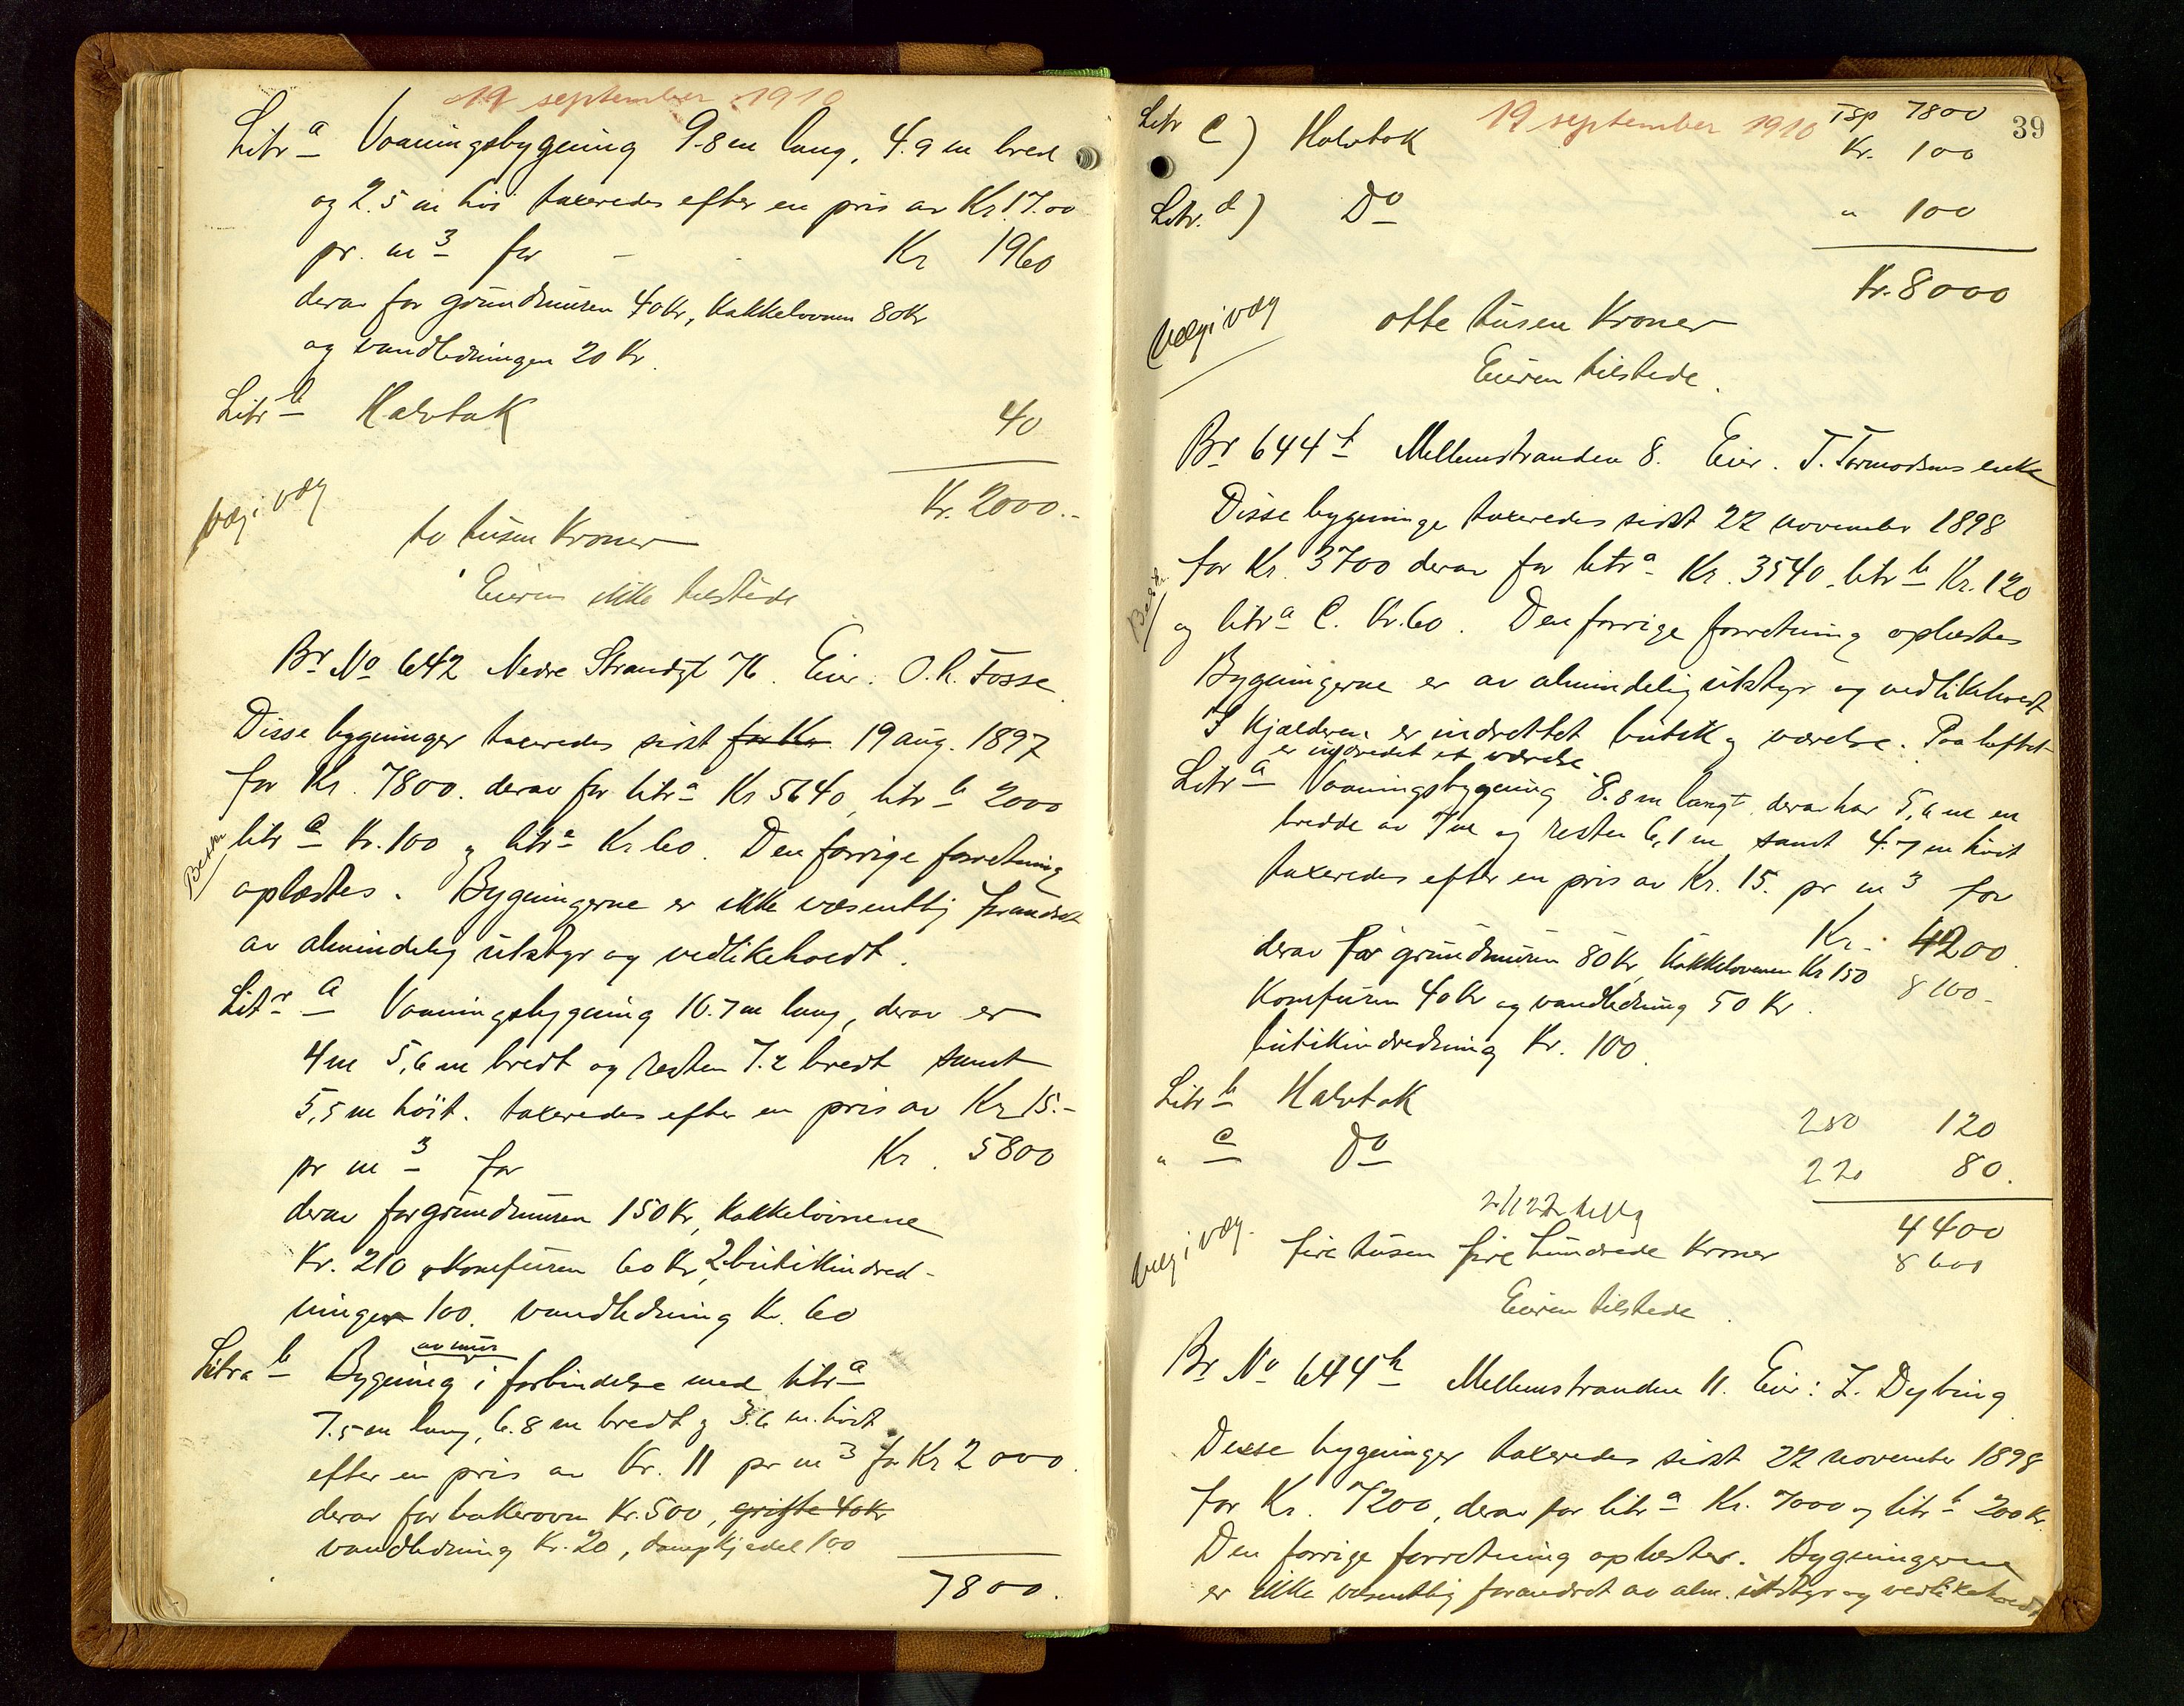 19 september 1910
Litr a Vaaningsbygning 9.8 m lang, 4.9 m bred
og 2.5 m høi taxeredes efter en pris av Kr. 17.00
pr. m3 for - - Kr 1960
derav for grundmuren 40 Kr, Kakkelovnen 80 Kr
og vandledningen 20 Kr.
Litr b Halvtak 40
Kr. 2000.-
to tusen Kroner
Eieren ikke tilstede
Br No 642 Nedre Strandgt 76. Eier: O. K. Fosse
Disse bygninger taxeredes sidst for Kr. 19 aug. 1897
for Kr. 7800. derav for litr a Kr 5640, litr b 2000
litr c Kr. 100 og litr Kr 60. Den forrige forretning
oplæstes. Bygningerne er ikke væsentlig forandret
av almindelig utstyr og vedlikeholdt.
Litr a Vaaningsbygning 16.7 m lang, derav er
4 m 5,6 m bredt og resten 7.2 bredt samt
5,5 m høit. taxeredes efter en pris av Kr 15.-
pr m3 for Kr. 5800
derav for grundmuren 150 Kr, Kakkelovnene
Kr. 210 Komfuren 60 Kr, 2 butikindred-
ninger 100. vandledning Kr. 60
av mur
Litra b Bygning i forbindelse med litr a
7.5 m lang, 6.8 m bredt og 3.6 m. høit
efter en pris av Kr. 11 pr m3 for Kr 2000.
derav for bakerovn Kr. 500, grifte 40 Kr
vandledning Kr. 20, dampkjedel 100
7800.
39
19 september 1910
Tsp 7800
Litr c) Halvtak Kr. 100
Litr. d) Do " 100
Kr. 8000
otte tusen Kroner
Eieren tilstede.
Br 644 f Mellemstranden 8. Eier. T. Tormodsens enke
Disse bygninge taxeredes sidst 22 november 1898
for Kr. 3700 derav for litr a Kr. 3540, litr b Kr. 120
og litr a C. Kr. 60. Den forrige forretning oplæstes
Bygningerne er av almindelig utstyr og vedlikeholdt
I Kjælderen er indrettet butik og værelse. Paa loftet
er indredet et værelse
Litr a Vaaningsbygning 8.8 m langt, derav har 5,6 m en
bredde av 7 m og resten 6,1 m samt 4.7 m høit
taxeredes efter en pris av Kr. 15. pr m3 for
Kr. 4200.
derav for grundmuren 80 Kr, Kakkelovnen Kr 150 8100.-
Komfuren 40 Kr og vandledning 50 Kr.
butikindredning Kr. 100.
Litr b Halvtak 280 120
" c Do 220 80.
4400
fire tusen fire hundrede Kroner 8600
Eieren tilstede.
Br No 644 h Mellemstranden 11. Eier: Z. Dybing
Disse bygninger taxeredes sidst 22 november 1898
for Kr. 7200, derav for litr a Kr. 7000 og litr b 200 Kr.
Den forrige forretning oplæstes. Bygningerne
er ikke væsentlig forandret av alm. utstyr og vedlikeholdt